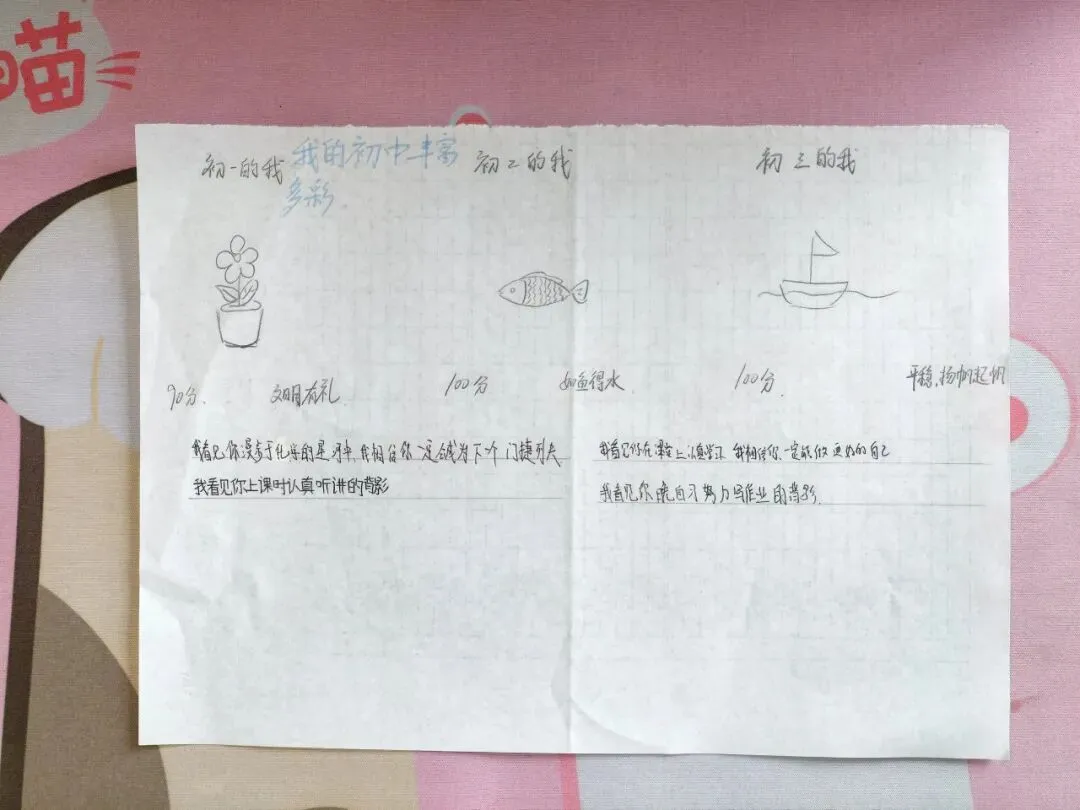 喵
初一的我
我的初中丰富
多彩
初2的我
初三的我
90分.
文明有礼
100分
如鱼得水
100分
平稳,扬帆起帆
我看见你漫步于化学的星河中,我相信你一定会成为下一个门捷列夫
我看见你上课时认真听讲的背影
我看见你在课堂上认真学习 我相信你一定能做更好的自己
我看见你晚自习努力写作业的背影.